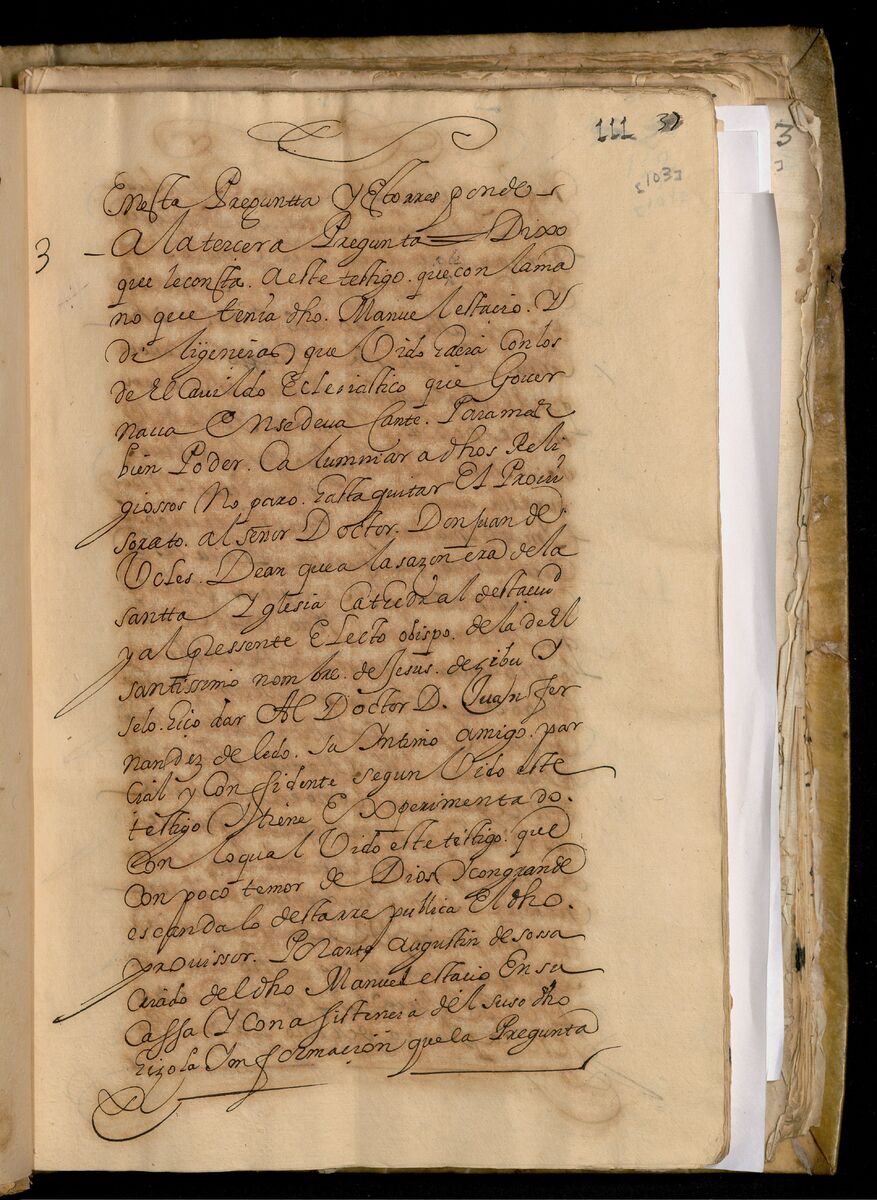 111 37
[103]
3
3
Enesta Preguntta Y Esto rresponde
A la tercera Pregunta Dixo
que le consta. a este testigo. que con la ma
no que tenia dho. Manuel estacio. Y
diligencias que Vido hacia con los
de El Cauildo Eclesiastico que Gouer
naua En sedeua Cante. Para mas
bien Poder. Calumniar a dhos Reli
giossos No paro. hasta quitar El Prouiss
sorato. al señor Doctor. Don Juan de
Ucles. Dean que a la sazon era de la
santta Yglesia Catedral desta ciud
y al pressente Electo obispo. de la de El
santissimo nombre. de Jesus. de sibu Y
selo. hiço dar Al Doctor D. Juan fer
nandez de ledo. su Yntimo amigo. par
cial y Confidente segun Vido este
testigo Y tiene Experimentado.
con lo qual Vido este testigo. que
con poco temor de Dios Y con grande
escandalo desta rrepublica El dho.
prouissor. Por ante Augustin de sossa
criado del dho Manuel estacio En su
Cassa Y con asistencia del suso dho
hizo la Ynformaçión que la Pregunta